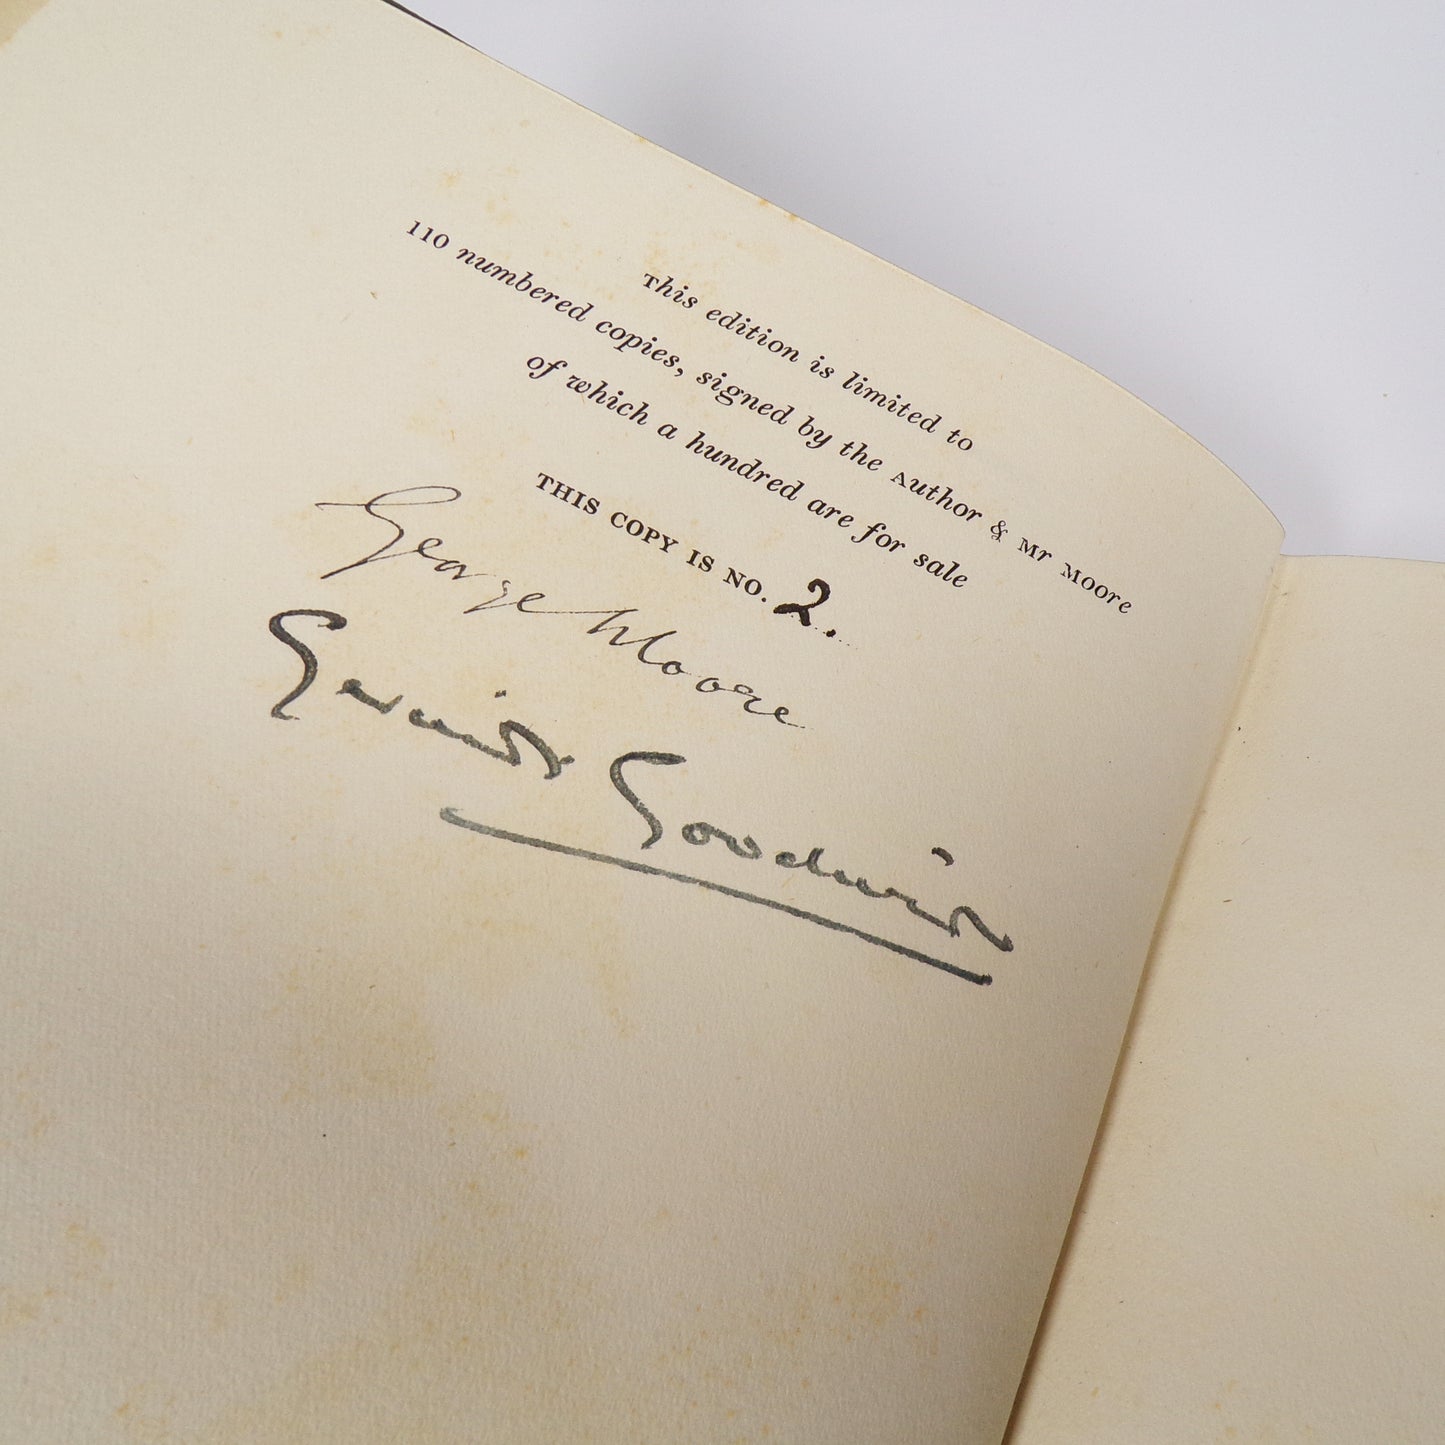 This edition is limited to
110 numbered copies, signed by the Author & Mr Moore
of which a hundred are for sale
THIS COPY IS NO. 2.
George Moore
Geraint Goodwin